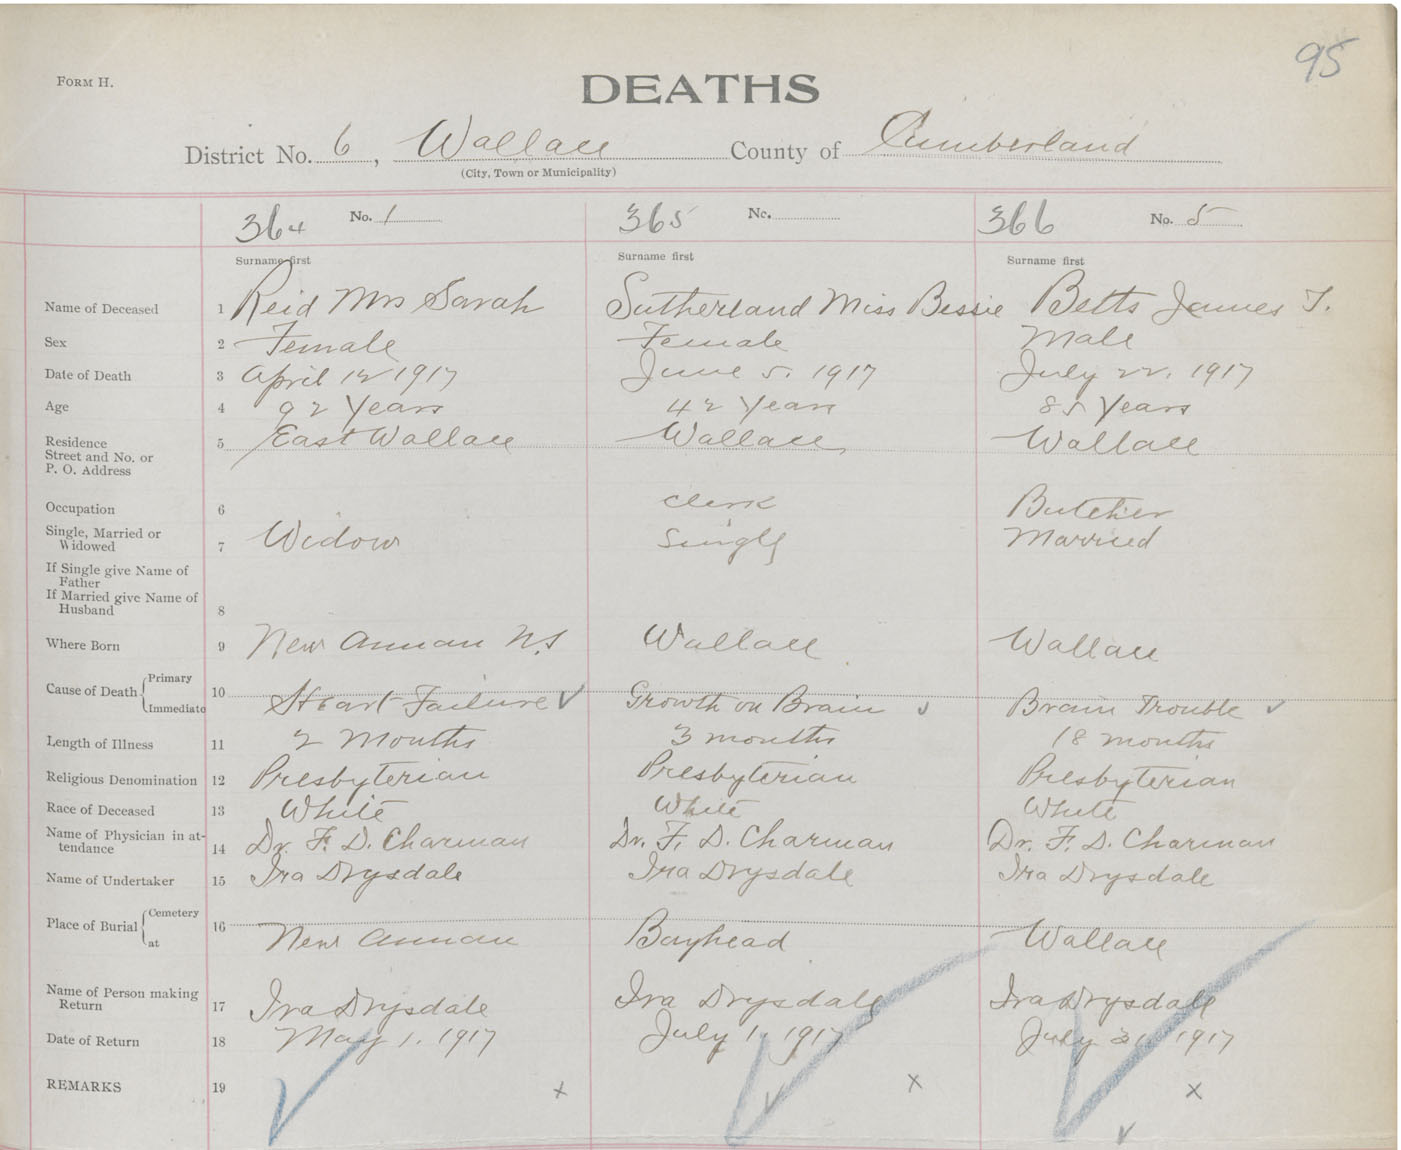 95
FORM H.
DEATHS
District No. 6, Wallace County of Cumberland
(City, Town or Municipality)
364 No. 1 365 No. 366 No. 5
Surname first Surname first Surname first
Name of Deceased 1 Reid Mrs Sarah Sutherland Miss Bessie Betts James T.
Sex 2 Female Female Male
Date of Death 3 April 12 1917 June 5. 1917 July 22. 1917
Age 4 92 Years 42 Years 85 Years
Residence
Street and No. or
P. O. Address 5 East Wallace Wallace Wallace
Occupation 6 Clerk Butcher
Single, Married or
Widowed 7 Widow Single Married
If Single give Name of
Father
If Married give Name of
Husband 8
Where Born 9 New Annan N.S Wallace Wallace
Cause of Death Primary
Immediate 10 Heart Failure Growth on Brain Brain Trouble
Length of Illness 11 2 Months 3 months 18 months
Religious Denomination 12 Presbyterian Presbyterian Presbyterian
Race of Deceased 13 White White White
Name of Physician in at-
tendance 14 Dr. F. D. Charman Dr. F. D. Charman Dr. F. D. Charman
Name of Undertaker 15 Ira Drysdale Ira Drysdale Ira Drysdale
Place of Burial Cemetery
at 16 New Annan Bayhead Wallace
Name of Person making
Return 17 Ira Drysdale Ira Drysdale Ira Drysdale
Date of Return 18 May 1. 1917 July 1. 1917 July 31 1917
REMARKS 19 x x x